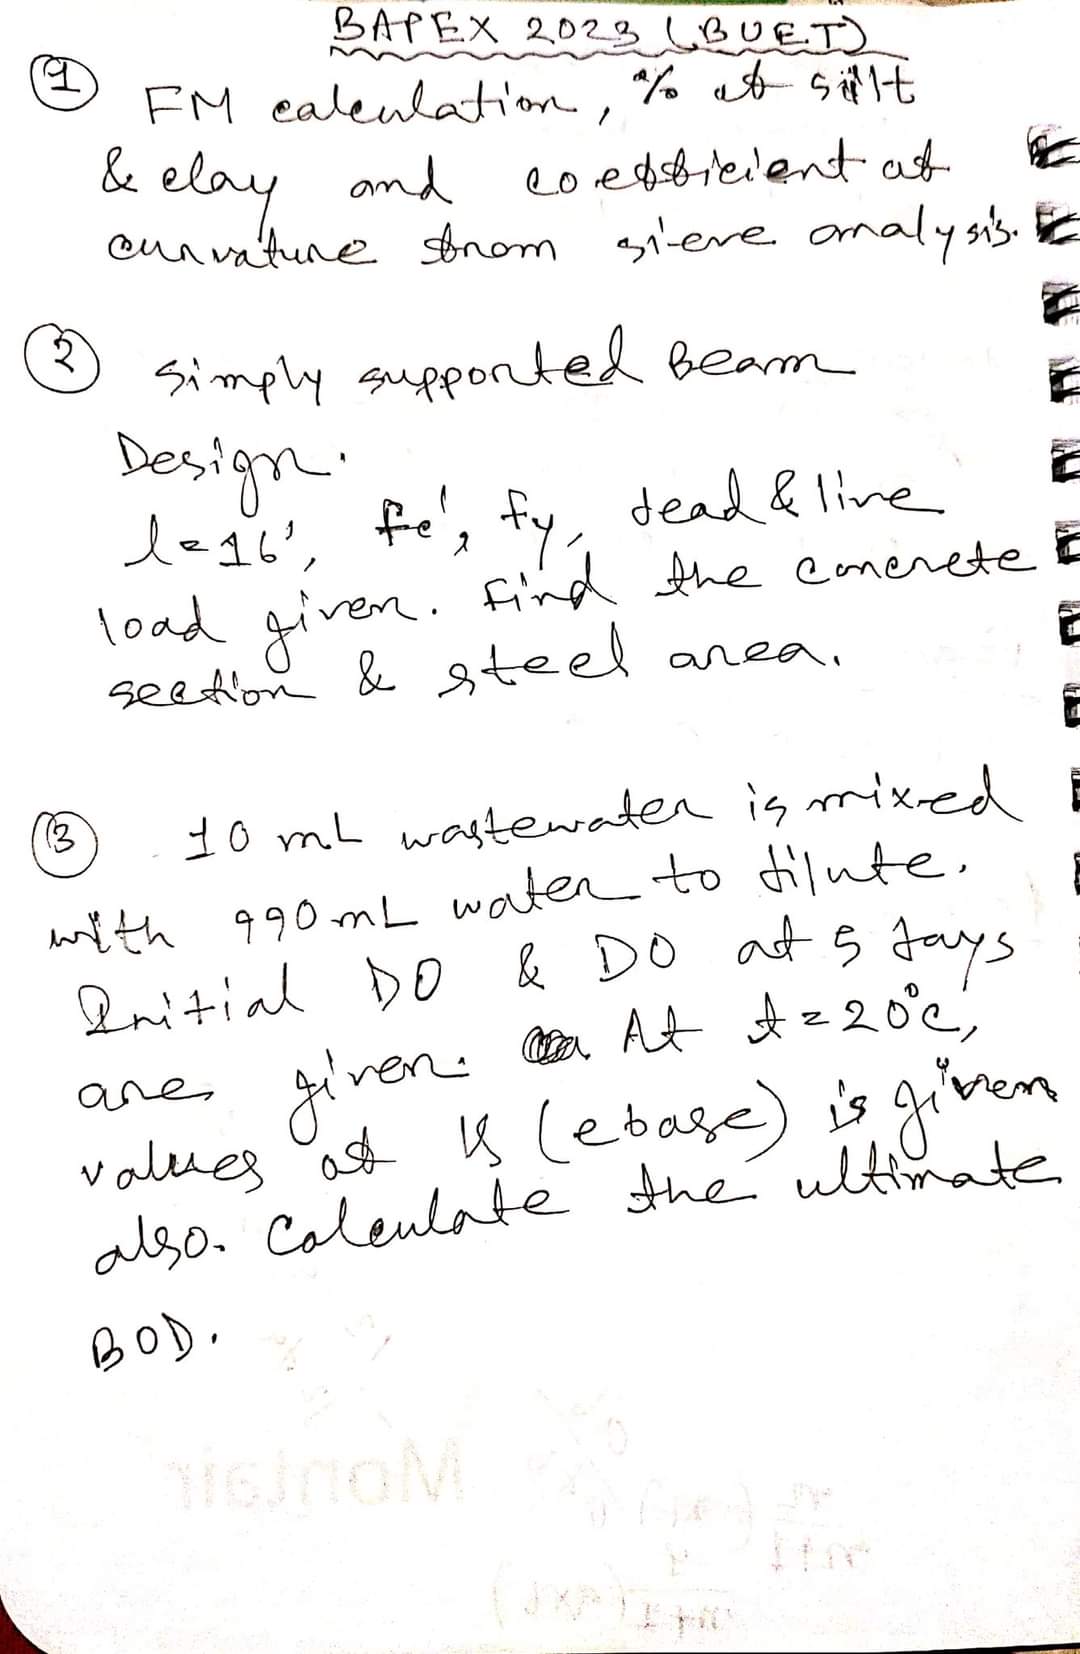 BAPEX 2023 (BUET)
1 FM calculation, % of silt
& clay and coefficient of
curvature from sieve analysis.
2 Simply supported Beam
Design.
l=16', fc', fy, dead & live
load given. Find the concrete
section & steel area.
3 10 mL wastewater is mixed
with 990 mL water to dilute.
Initial DO & DO at 5 days
are given. At t=20°C,
values of K (e base) is given
also. Calculate the ultimate
BOD.